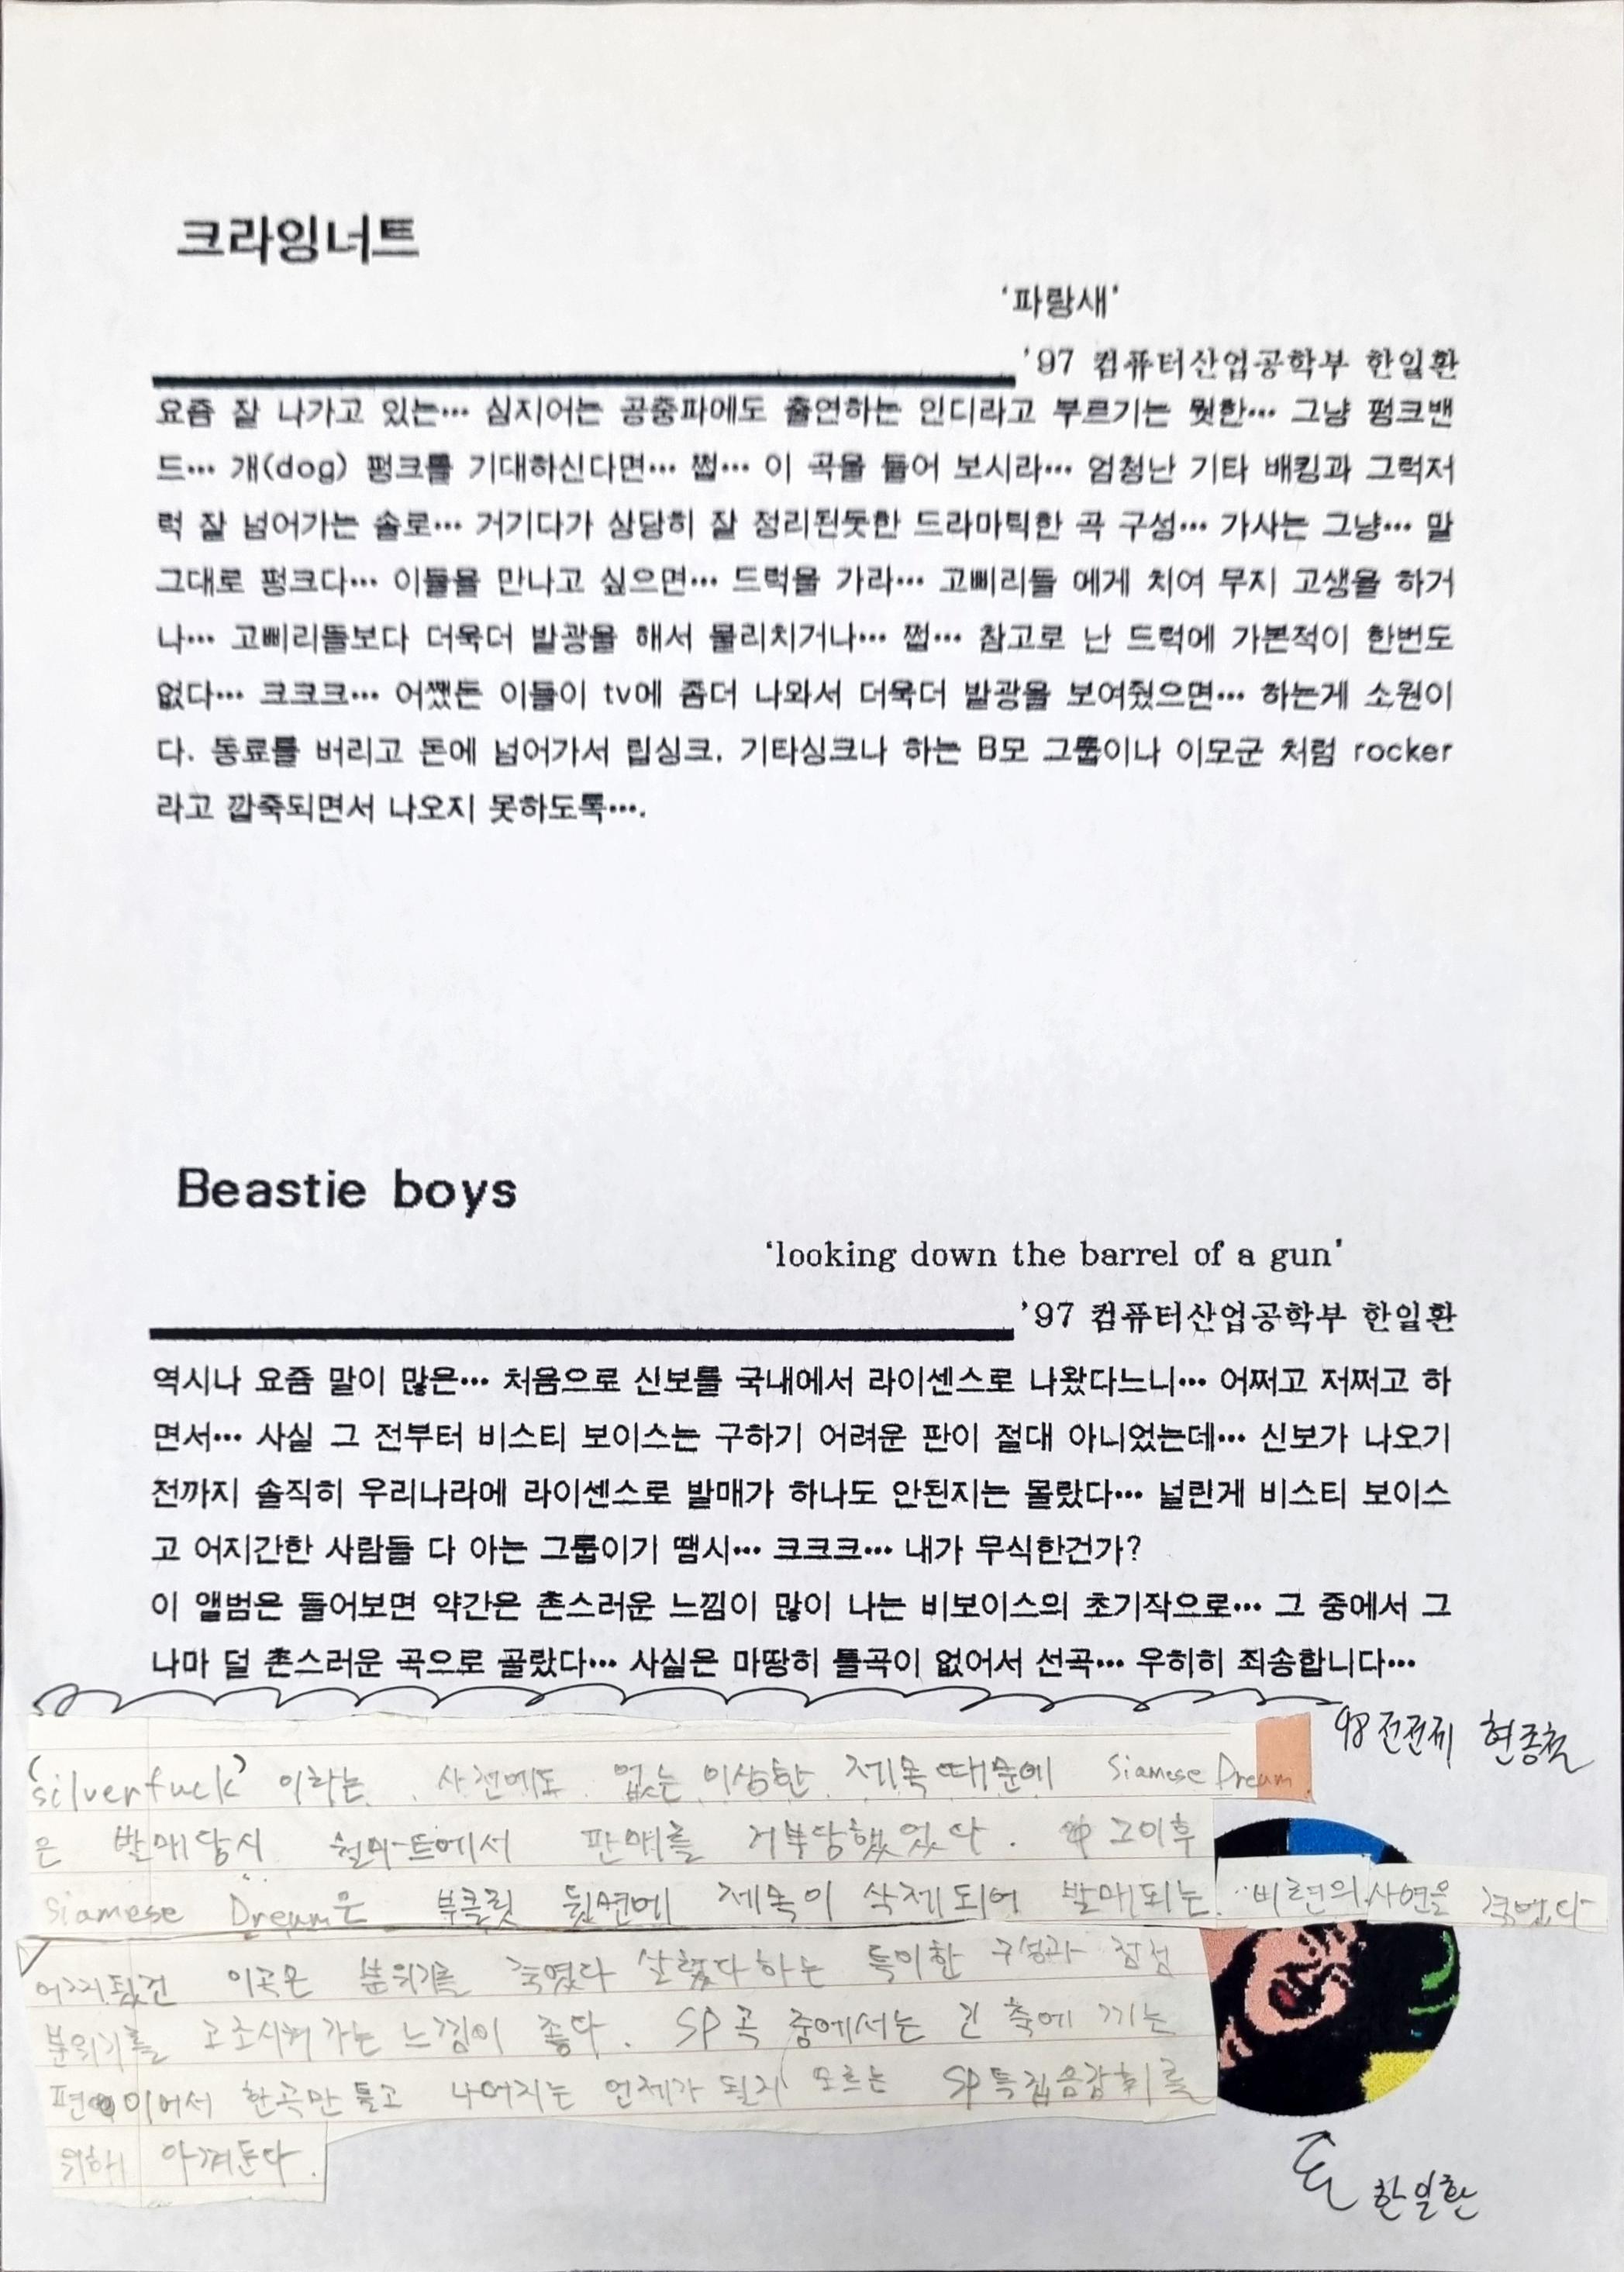 크라잉너트
‘파랑새’
’97 컴퓨터산업공학부 한일환
요즘 잘 나가고 있는… 심지어는 공중파에도 출연하는 인디라고 부르기는 뭣한… 그냥 펑크밴
드… 개(dog) 펑크를 기대하신다면… 쩝… 이 곡을 들어 보시라… 엄청난 기타 배킹과 그럭저
럭 잘 넘어가는 솔로… 거기다가 상당히 잘 정리된듯한 드라마틱한 곡 구성… 가사는 그냥… 말
그대로 펑크다… 이들을 만나고 싶으면… 드럭을 가라… 고삐리들 에게 치여 무지 고생을 하거
나… 고삐리들보다 더욱더 발광을 해서 물리치거나… 쩝… 참고로 난 드럭에 가본적이 한번도
없다… 크크크… 어쨌든 이들이 tv에 좀더 나와서 더욱더 발광을 보여줬으면… 하는게 소원이
다. 동료를 버리고 돈에 넘어가서 립싱크, 기타싱크나 하는 B모 그룹이나 이모군 처럼 rocker
라고 깝죽되면서 나오지 못하도록….
Beastie boys
‘looking down the barrel of a gun’
’97 컴퓨터산업공학부 한일환
역시나 요즘 말이 많은… 처음으로 신보를 국내에서 라이센스로 나왔다느니… 어쩌고 저쩌고 하
면서… 사실 그 전부터 비스티 보이스는 구하기 어려운 판이 절대 아니었는데… 신보가 나오기
전까지 솔직히 우리나라에 라이센스로 발매가 하나도 안된지는 몰랐다… 널린게 비스티 보이스
고 어지간한 사람들 다 아는 그룹이기 땜시… 크크크… 내가 무식한건가?
이 앨범은 들어보면 약간은 촌스러운 느낌이 많이 나는 비보이스의 초기작으로… 그 중에서 그
나마 덜 촌스러운 곡으로 골랐다… 사실은 마땅히 틀곡이 없어서 선곡… 우히히 죄송합니다…
98 전전제 현종철
(silverfuck) 이라는 사전에도 없는 이상한 제목 때문에 Siamese Dream
은 발매당시 월마트에서 판매를 거부당했었다. 그이후
Siamese Dream은 부클릿 뒷면에 제목이 삭제되어 발매되는 비련의 사연을 겪었다
어찌됐건 이곡은 분위기를 죽였다 살렸다하는 특이한 구성과 점점
분위기를 고조시켜 가는 느낌이 좋다. SP곡 중에서는 긴 축에 끼는
편이어서 한곡만 틀고 나머지는 언제가 될지 모르는 SP특집음감회를
위해 아껴둔다.
한일환